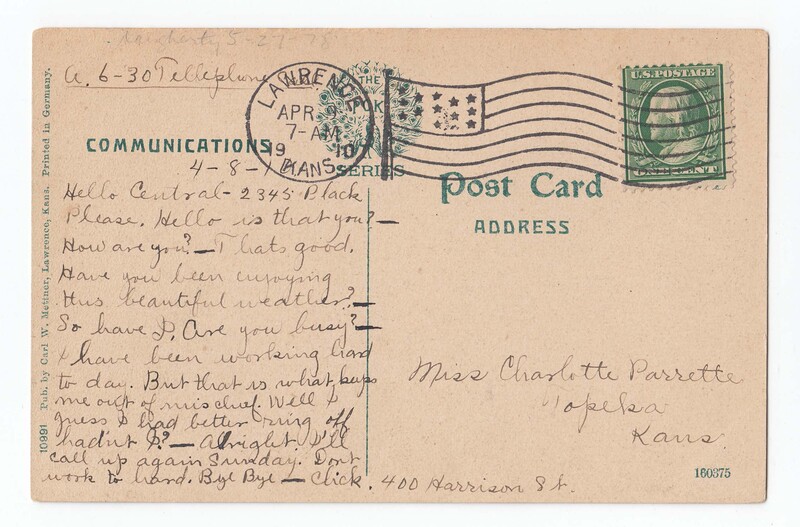 Daugherty 5-27-78
A. 6-30 Tellephone
LAWRENCE
APR 9
7-AM
1910
KANS.
THE
SERIES
U.S. POSTAGE
ONE CENT
COMMUNICATIONS
4-8-1
Hello Central - 2345 Black
Please. Hello is that you? —
How are you? — Thats good.
Have you been enjoying
this beautiful weather? —
So have I, Are you busy? —
I have been working hard
to day. But that is what keeps
me out of mischief. Well I
guess I had better ring off
hadn't I? — Alright. I'll
call up again Sunday. Dont
work to hard. Bye Bye — Click.
Post Card
ADDRESS
Miss Charlotte Parrette
Topeka
Kans.
400 Harrison St.
160375
10991 Pub. by Carl W. Mettner, Lawrence, Kans. Printed in Germany.